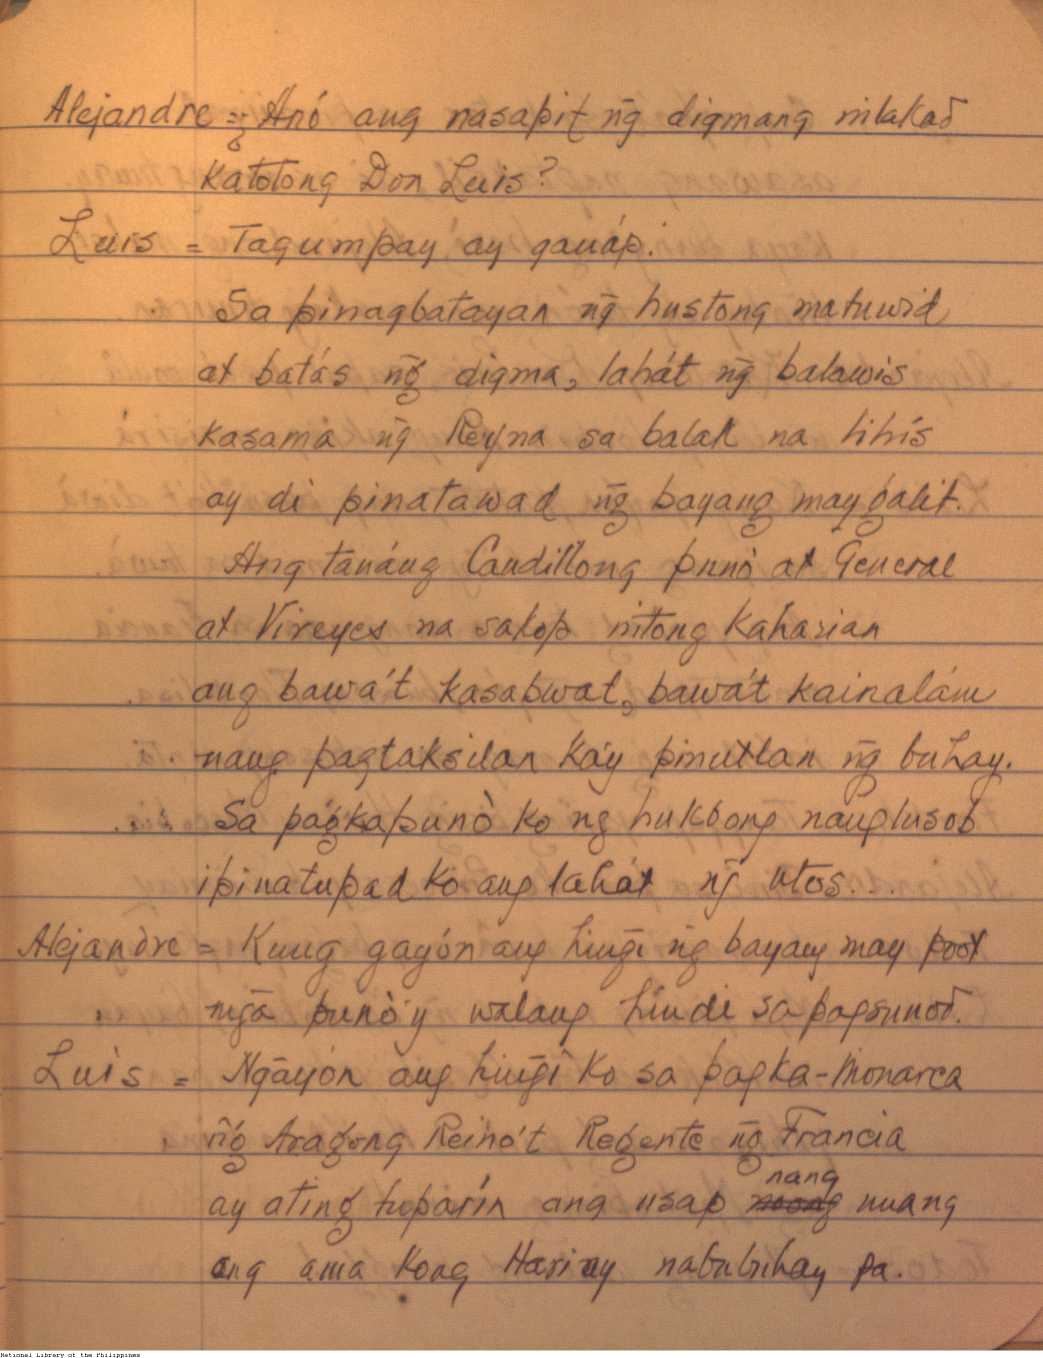 Alejandre = Anó ang nasapit n̄g digmang nilakad
katotong Don Luis?
Luis = Tagumpay ay ganáp.
Sa pinagbatayan n̄g hustong matuwid
at batás n̄g digma, lahát n̄g balawis
kasama n̄g Reyna sa balak na lihís
ay di pinatawad n̄g bayang may galit.
Ang tanáng Caudillong punò at General
at Vireyes na sakop nitong kaharian
ang bawa't kasabwat, bawa't kainalám
nang pagtaksilan ka'y pinutlan n̄g buhay.
Sa pagkapunò ko ng hukbong nanglusob
ipinatupad ko ang lahát n̄g utos...
Alejandre = Kung gayón ang hin̄gi n̄g bayang may poot
mḡa punò'y walang hindi sa pagsunod.
Luis = N̄gayón ang hin̄gi ko sa pagka-Monarca
n̄g Aragong Reino't Regente n̄g Francia
ay ating tuparín ang usap nang nuang
ang ama kong Hari ay nabubuhay pa.
National Library of the Philippines